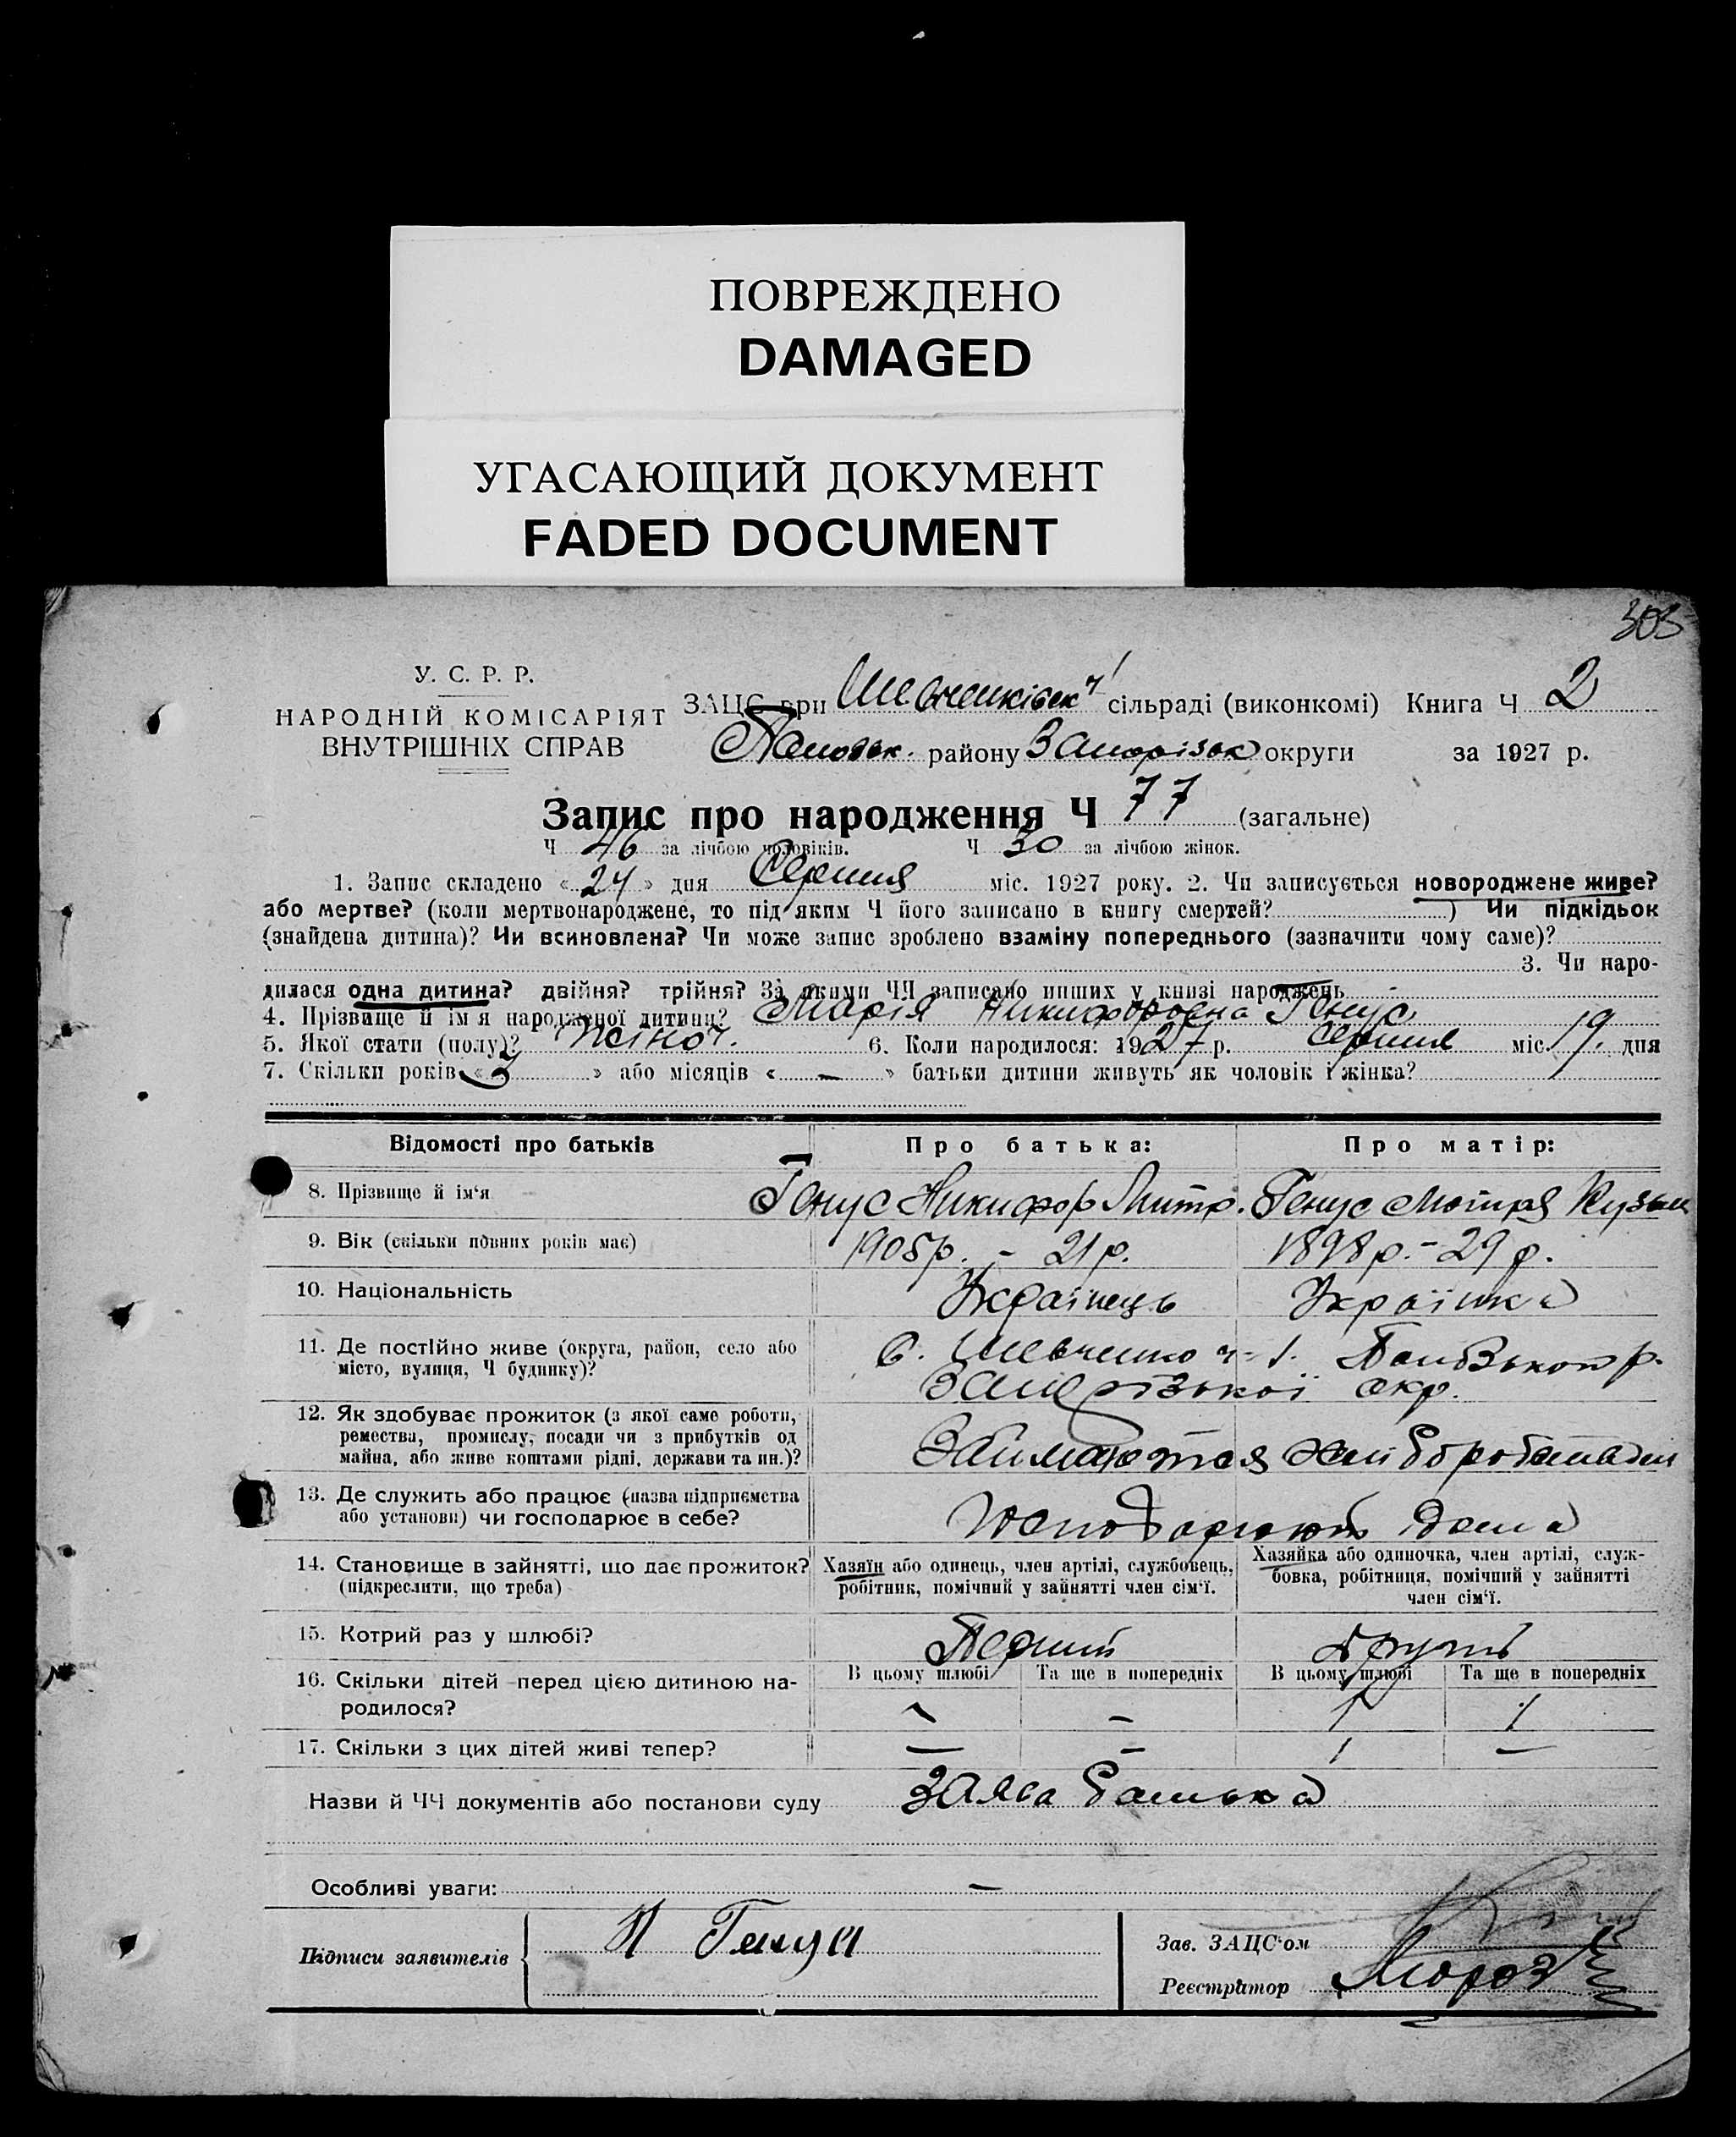 ПОВРЕЖДЕНО
DAMAGED
УГАСАЮЩИЙ ДОКУМЕНТ
FADED DOCUMENT
303
У. С. Р. Р.
НАРОДНІЙ КОМІСАРІЯТ
ВНУТРІШНІХ СПРАВ
ЗАЦС при Шевченківск ч 1 сільраді (виконкомі) Книга Ч 2
району Запорізьк округи за 1927 р.
Запис про народження Ч 77 (загальне)
Ч 46 за лічбою чоловіків. Ч 30 за лічбою жінок.
1. Запис складено «24» дня Серпня міс. 1927 року. 2. Чи записується новороджене живе?
або мертве? (коли мертвонароджене, то під яким Ч його записано в книгу смертей? ) Чи підкідьок
(знайдена дитина)? Чи всиновлена? Чи може запис зроблено взаміну попереднього (зазначити чому саме)?
3. Чи наро-
дилася одна дитина? двійня? трійня? За якими ЧЧ записано инших у книзі народжень -
4. Прізвище й ім'я народженої дитини? Марія Никифоровна Генус
5. Якої стати (полу)? жіноч. 6. Коли народилося: 1927 р. серпня міс. 19. дня
7. Скільки років « » або місяців « — » батьки дитини живуть як чоловік і жінка?
Відомості про батьків Про батька: Про матір:
8. Прізвище й ім'я Генус Никифор Митр. Генус Мотря Кузьм
9. Вік (скільки повних років має) 1905р. - 21 р. 1898 р. - 29 р.
10. Національність Українець Українка
11. Де постійно живе (округа, район, село або С. Шевченко ч-1.
місто, вулиця, Ч будинку)? Запорізької окр.
12. Як здобуває прожиток (з якої саме роботи,
ремества, промислу, посади чи з прибутків од
майна, або живе коштами рідні, держави та ин.)? Займаются
13. Де служить або працює (назва підприємства
або установи) чи господарює в себе? Господарюють дома
14. Становище в зайнятті, що дає прожиток? Хазяїн або одинець, член артілі, службовець, Хазяйка або одиночка, член артілі, служ-
(підкреслити, що треба) робітник, помічний у зайнятті член сім'ї. бовка, робітниця, помічний у зайнятті
член сім'ї.
15. Котрий раз у шлюбі? Перший другий
16. Скільки дітей перед цією дитиною на- В цьому шлюбі Та ще в попередніх В цьому шлюбі Та ще в попередніх
родилося? — — 1 1
17. Скільки з цих дітей живі тепер? — — 1 —
Назви й ЧЧ документів або постанови суду Заява батька
Особливі уваги: —
Підписи заявителів Н Генус
Зав. ЗАЦС'ом
Реєстратор Мороз